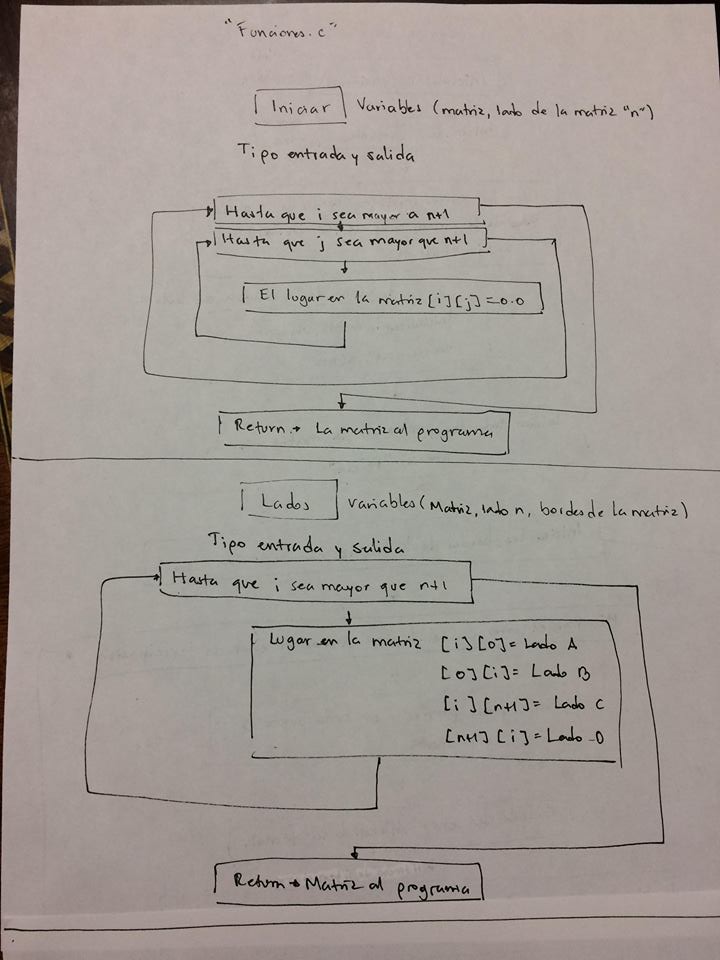 "Funciones.c"
Iniciar Variables (matriz, lado de la matriz "n")
Tipo entrada y salida
Hasta que i sea mayor a n+1
Hasta que j sea mayor que n+1
El lugar en la matriz [i][j]=0.0
Return → La matriz al programa
Lados Variables (Matriz, lado n, bordes de la matriz)
Tipo entrada y salida
Hasta que i sea mayor que n+1
Lugar en la matriz [i][0]= Lado A
[0][i]= Lado B
[i][n+1]= Lado C
[n+1][i]= Lado D
Return → Matriz al programa